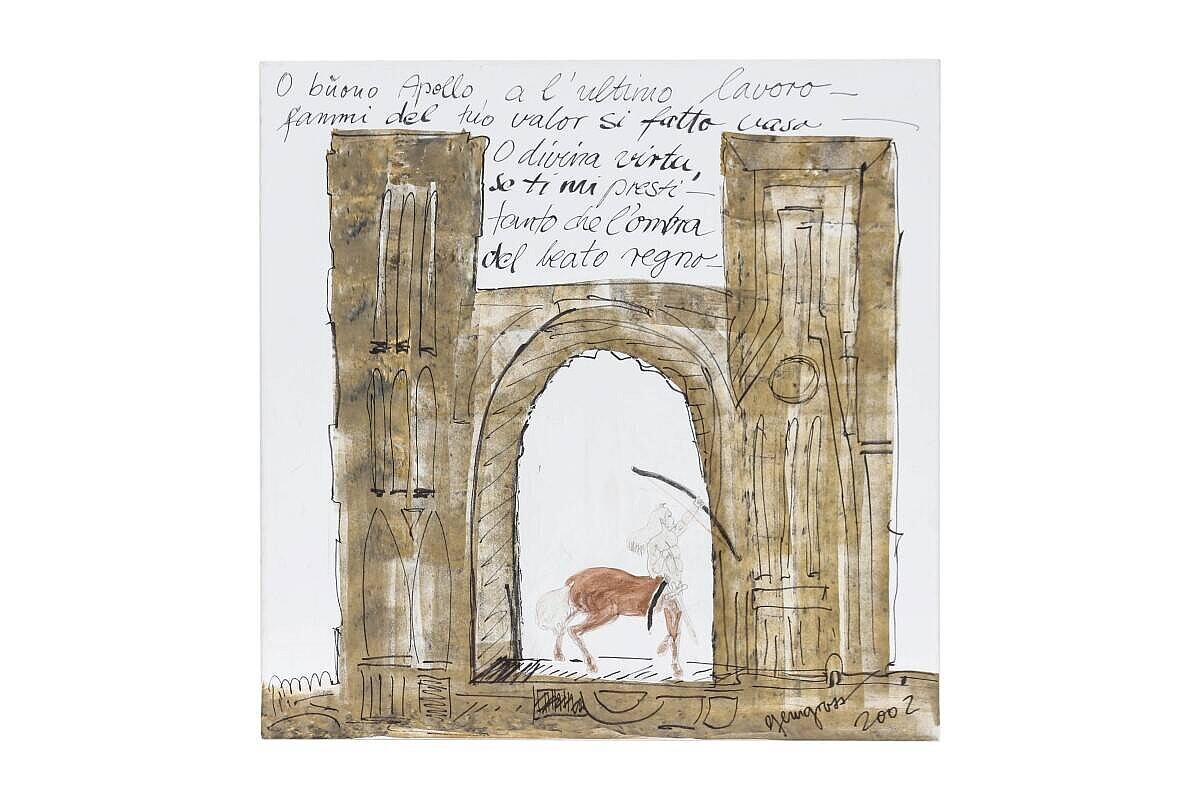 O buono Apollo a l'ultimo lavoro —
fammi del tuo valor si fatto vaso —
O divina virtu,
se ti mi presti —
tanto che l'ombra
del beato regno —
2002